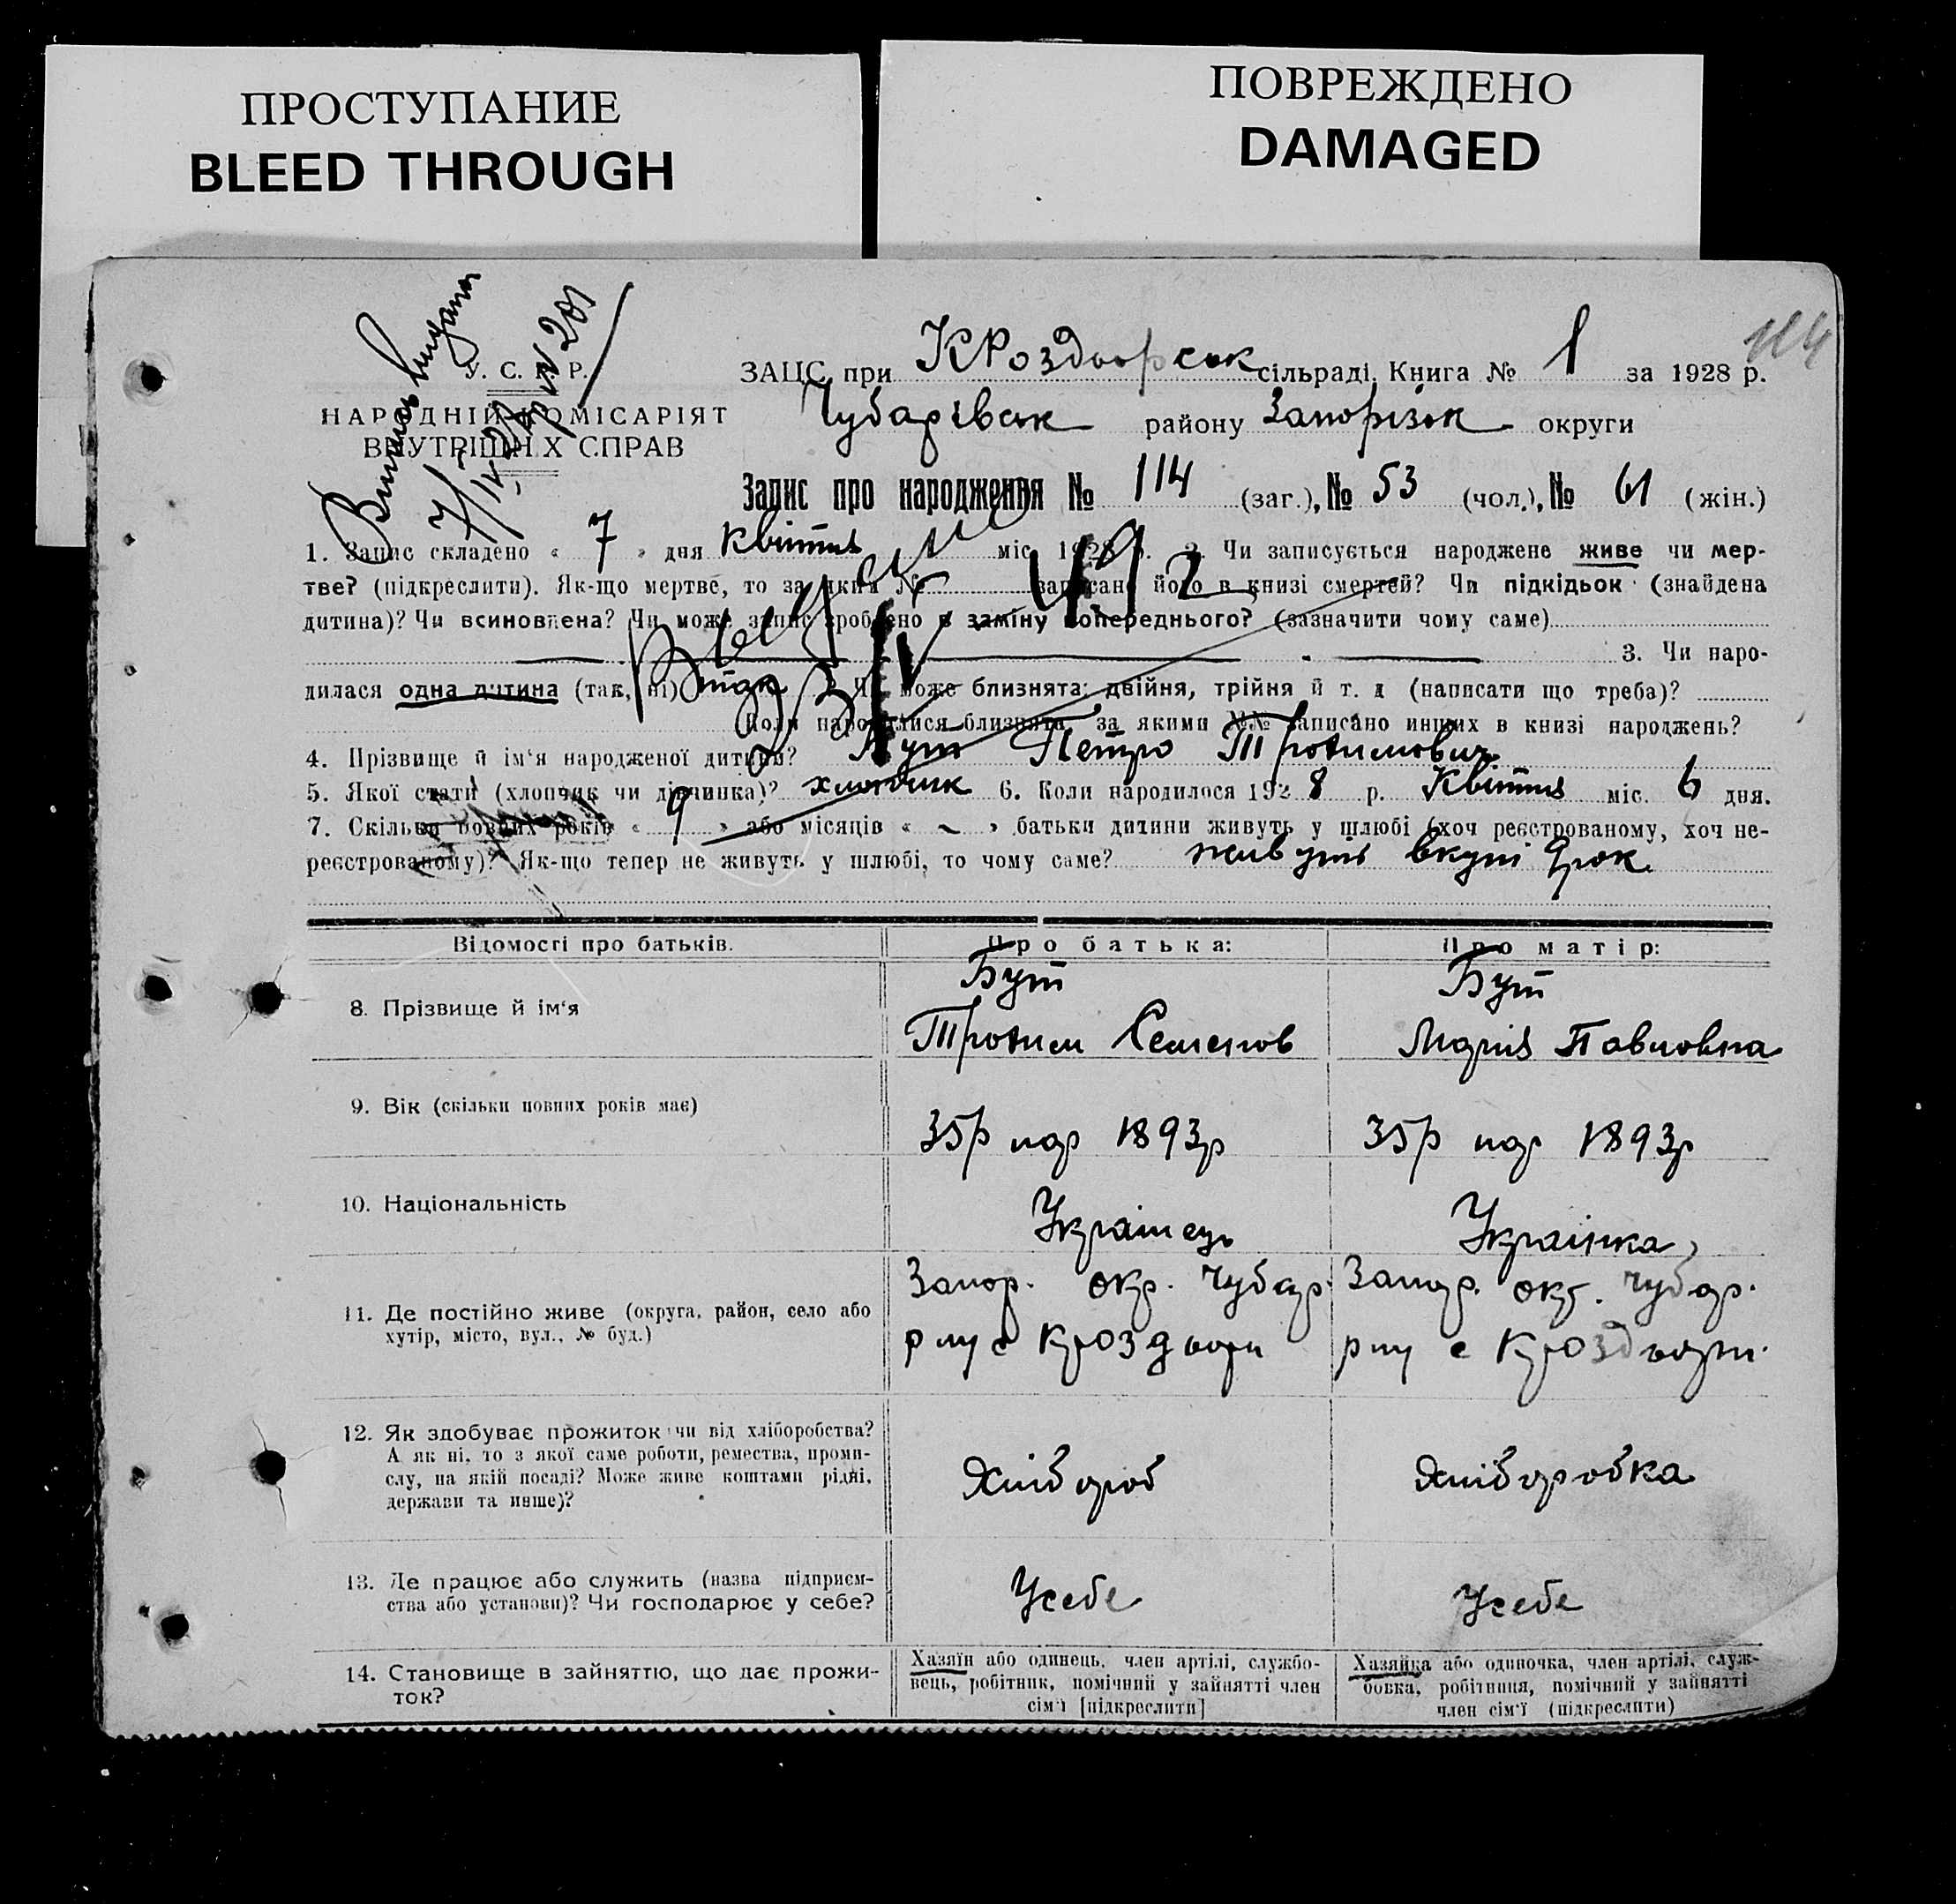 ПРОСТУПАНИЕ
BLEED THROUGH
ПОВРЕЖДЕНО
DAMAGED
У. С. Р. Р.
НАРОДНІЙ КОМІСАРІЯТ
ВНУТРІШНІХ СПРАВ
114
ЗАЦС при КРоздорськ сільраді. Книга № 1 за 1928 р.
Чубарівськ району Запорізьк округи
Запис про народження № 114 (заг.), № 53 (чол.), № 61 (жін.)
1. Запис складено « 7 » дня квітня міс. 1928 р. 2. Чи записується народжене живе чи мер-
тве? (підкреслити). Як-що мертве, то за яким № записано його в книзі смертей? Чи підкідьок (знайдена
дитина)? Чи всиновлена? Чи може запис зроблено в заміну попереднього? (зазначити чому саме)
3. Чи наро-
дилася одна дитина (так, ні) так Чи може близнята: двійня, трійня й т. д (написати що треба)?
Коли народилися близнята, за якими №№ записано инших в книзі народжень?
4. Прізвище й ім'я народженої дитини? Бут Петро Трохимович
5. Якої статі (хлопчик чи дівчинка)? хлопчик 6. Коли народилося 1928 р. Квітня міс. 6 дня.
7. Скільки повних років « 9 » або місяців « — » батьки дитини живуть у шлюбі (хоч реєстрованому, хоч не-
реєстрованому)? Як-що тепер не живуть у шлюбі, то чому саме? живуть вкупі 9 рок
Відомості про батьків. Про батька: Про матір:
8. Прізвище й ім'я
Бут
Трохим Семенов
Бут
Марія Павловна
9. Вік (скільки повних років має)
35р нар 1893р
35р нар 1893р
10. Національність
Українець
Українка
11. Де постійно живе (округа, район, село або
хутір, місто, вул., № буд.)
Запор. окр. Чубар.
р ну с Кроздори
Запор. окр. Чубар.
р ну с Кроздори.
12. Як здобуває прожиток чи від хліборобства?
А як ні, то з якої саме роботи, ремества, проми-
слу, на якій посаді? Може живе коштами рідні,
держави та инше)?
Хлібороб
Хліборобка
13. Де працює або служить (назва підприєм-
ства або установи)? Чи господарює у себе?
Усебе
Усебе
14. Становище в зайняттю, що дає прожи-
ток?
Хазяїн або одинець, член артілі, службо-
вець, робітник, помічний у зайнятті член
сім'ї [підкреслити]
Хазяйка або одиночка, член артілі, служ-
бовка, робітниця, помічний у зайнятті
член сім'ї (підкреслити)